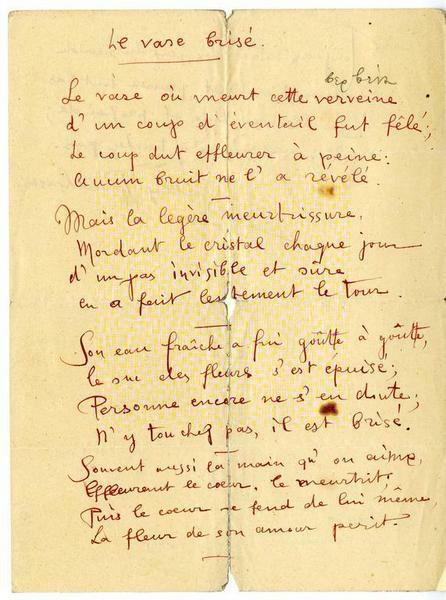 Le vase brisé.
Le vase où meurt cette verveine
d'un coup d'éventail fut fêlé;
Le coup dut effleurer à peine:
Aucun bruit ne l'a révélé.
Mais la legère meurtrissure,
Mordant le cristal chaque jour
d'un pas invisible et sûre
en a fait lentement le tour.
Son eau fraîche a fui goûtte à goûtte,
le suc des fleurs s'est épuisé;
Personne encore ne s'en doute;
N'y touchez pas, il est brisé.
Souvent aussi la main qu'on aime,
Effleurant le coeur, le meurtrit.
Puis le coeur se fend de lui même,
La fleur de son amour perit.